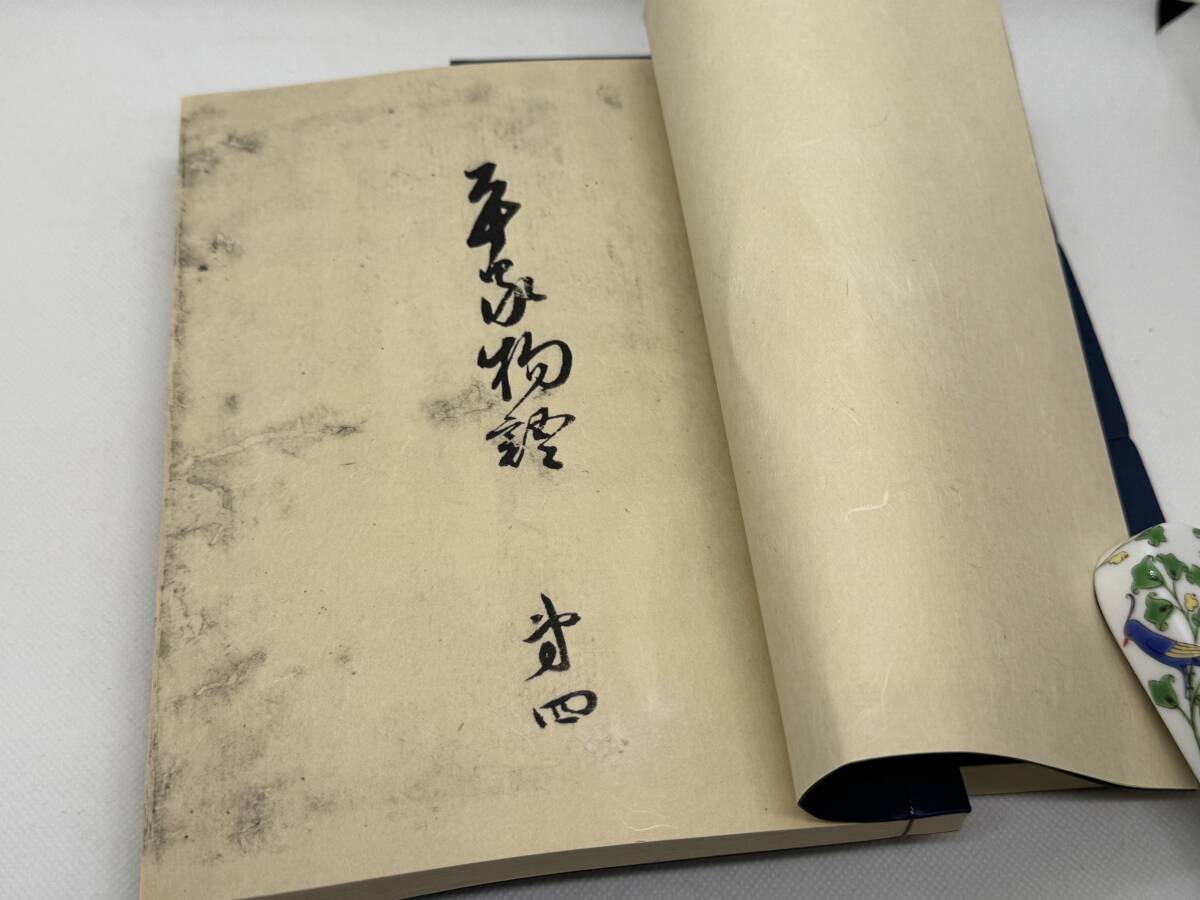 平家物語
第四